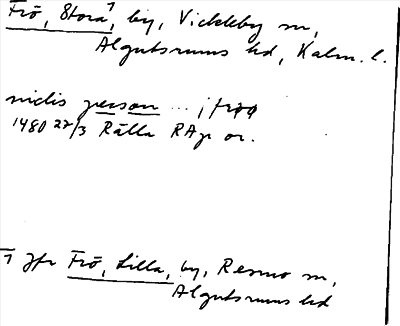 Frö, Stora ¹, by, Vickleby sn,
Algutsrums hd, Kalm. l.
nielis person ... i fröö
1480 22/3 Rälla RAp or.
¹ Jfr Frö, Lilla, by, Resmo sn,
Algutsrums hd